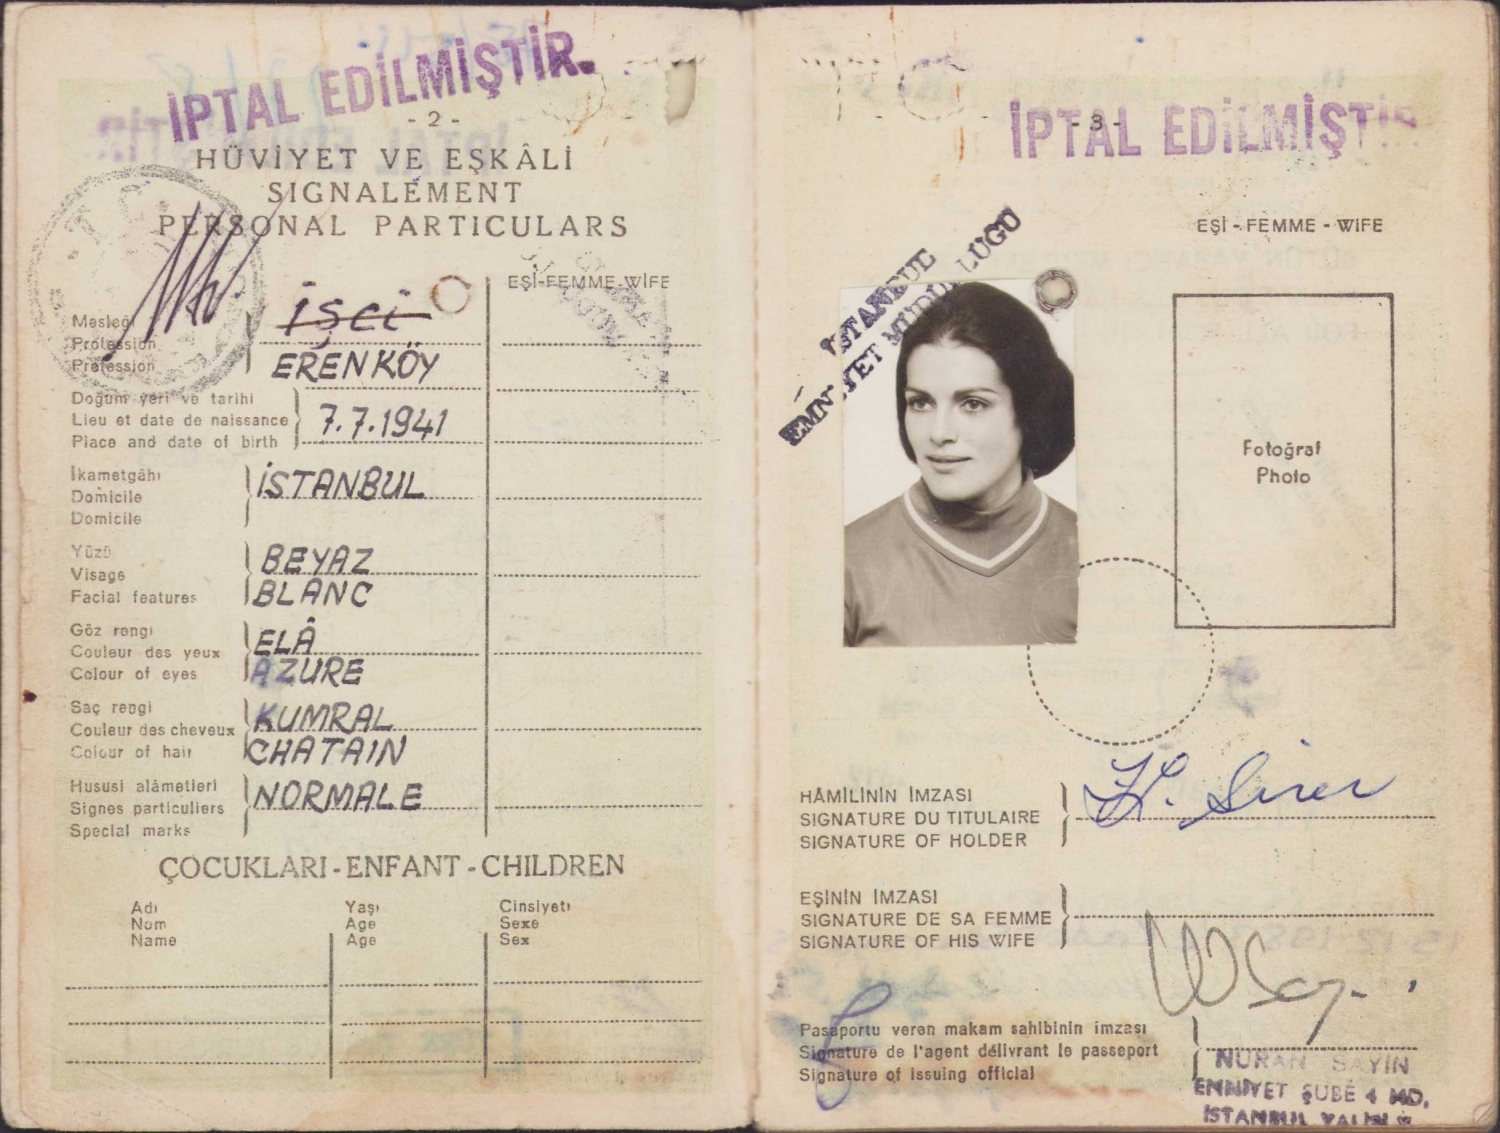 İPTAL EDİLMİŞTİR.
- 2 -
HÜVİYET VE EŞKÂLİ
SIGNALEMENT
PERSONAL PARTICULARS
T.C.
EŞİ-FEMME-WİFE
Mesleği
Profession
Profession
İşci
ERENKÖY
Doğum yeri ve tarihi
Lieu et date de naissance
Place and date of birth
7.7.1941
İkametgâhı
Domicile
Domicile
İSTANBUL
Yüzü
Visage
Facial features
BEYAZ
BLANC
Göz rengi
Couleur des yeux
Colour of eyes
ELÂ
AZURE
Saç rengi
Couleur des cheveux
Colour of hair
KUMRAL
CHATAIN
Hususi alâmetleri
Signes particuliers
Special marks
NORMALE
ÇOCUKLARI - ENFANT - CHILDREN
Adı
Nom
Name
Yaşı
Age
Age
Cinsiyeti
Sexe
Sex
İPTAL EDİLMİŞTİR
- 3 -
EŞİ - FEMME - WİFE
Fotoğraf
Photo
HÂMİLİNİN İMZASI
SIGNATURE DU TITULAIRE
SIGNATURE OF HOLDER
H. Sirer
EŞİNİN İMZASI
SIGNATURE DE SA FEMME
SIGNATURE OF HIS WIFE
Pasaportu veren makam sahibinin imzası
Signature de l'agent délivrant le passeport
Signature of issuing official
NURAN SAYIN
EMNİYET ŞUBE 4 MD.
İSTANBUL